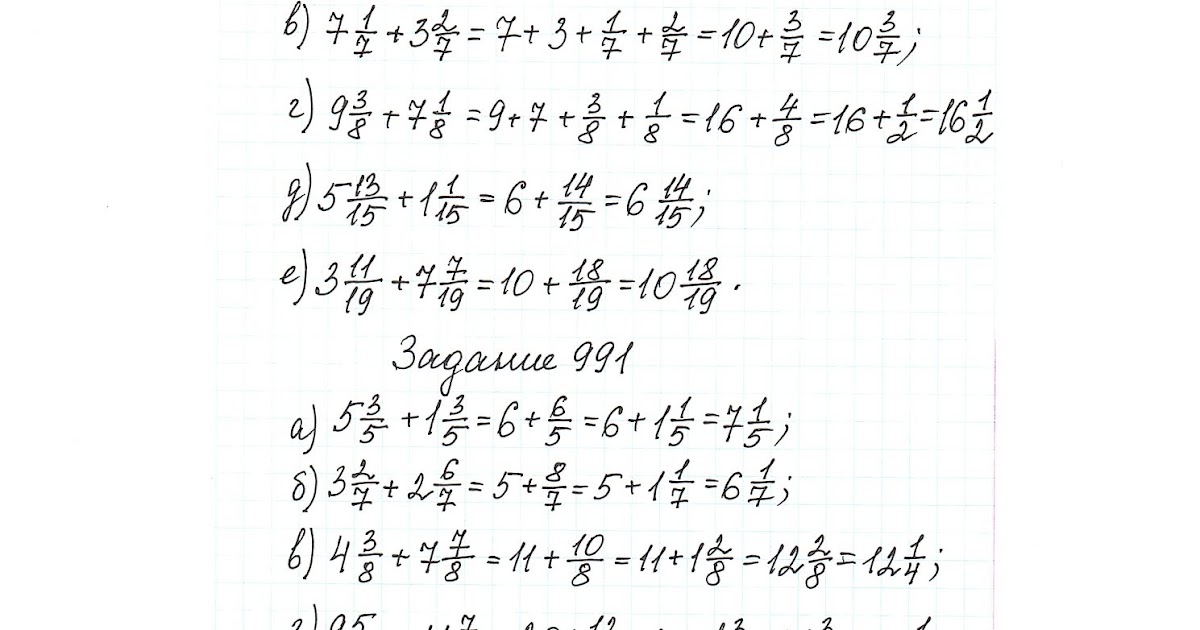 в) 7 1/7 + 3 2/7 = 7 + 3 + 1/7 + 2/7 = 10 + 3/7 = 10 3/7;
г) 9 3/8 + 7 1/8 = 9 + 7 + 3/8 + 1/8 = 16 + 4/8 = 16 + 1/2 = 16 1/2
д) 5 13/15 + 1 1/15 = 6 + 14/15 = 6 14/15;
е) 3 11/19 + 7 7/19 = 10 + 18/19 = 10 18/19.
Задание 991
а) 5 3/5 + 1 3/5 = 6 + 6/5 = 6 + 1 1/5 = 7 1/5;
б) 3 2/7 + 2 6/7 = 5 + 8/7 = 5 + 1 1/7 = 6 1/7;
в) 4 3/8 + 7 7/8 = 11 + 10/8 = 11 + 1 2/8 = 12 2/8 = 12 1/4;